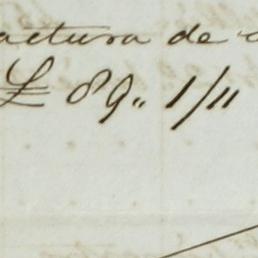 actura de
£ 89,, 1/11